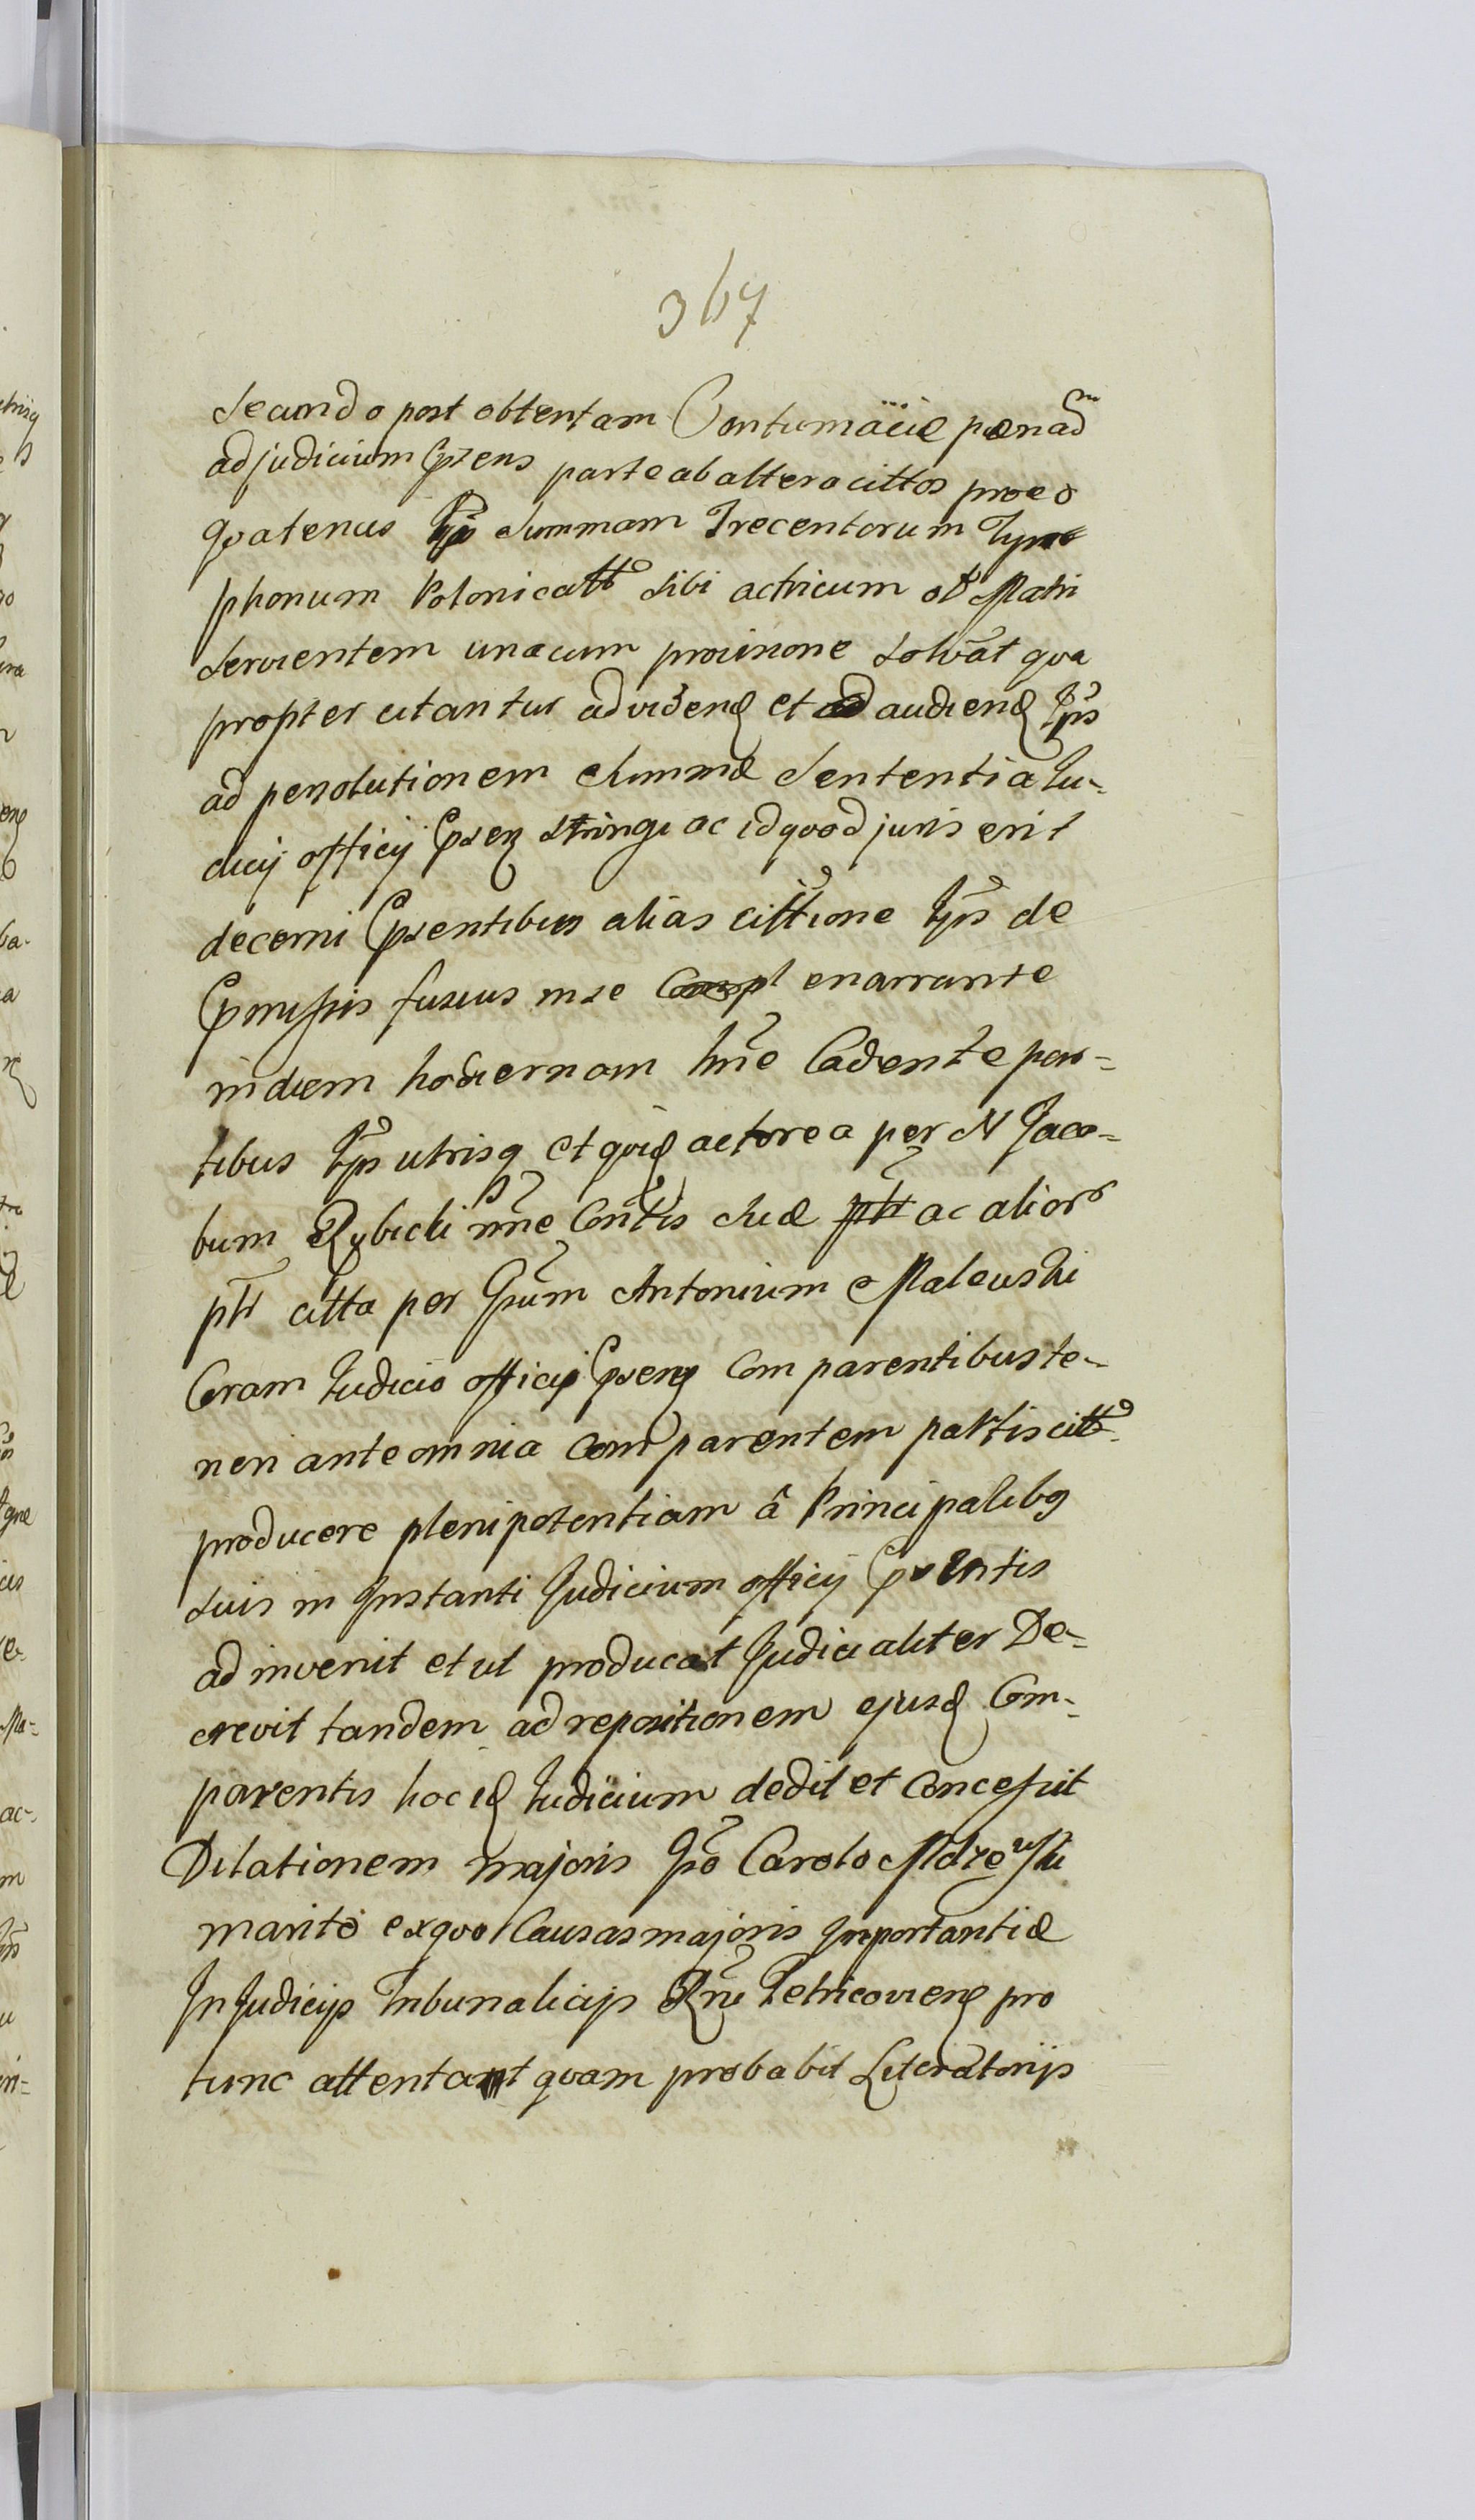 367
Secundo post obtentam Contumaciæ pænam
ad judicium Ppsens parte ab altera cittos pro eo
quatenus Ipsi Summam Trecentorum Tym
phonum Polonicall sibi actricum et Matri
servientem unacum provisione solvat qva
propter citantur ad videnq et ad audienq Ips
ad persolutionem Summæ Sententia Iu-
dicij officij Ppsen stringi ac id qvod juris erit
decerni Ppsentibus alias cittione Ips de
Ppmissis fusius in se enarrante
in diem hodiernam hne Cadente par-
tibus Ips utrisq et qvidq actorea per N Jaco-
bum Rybicki nne Contis Suæ ac alior
ptr citta per Gsum Antonium Maleuski
Coram Iudicio officij Ppsenq Comparentibus te-
neri ante omnia Comparentem partis citt
producere plenipotentiam â Principalibq
suis in Instanti Judicium officij Ppsentis
adinvenit et ut producat Judicialiter De-
crevit tandem ad repositionem ejusq Com-
parentis hoc idq Iudicium dedit et Concessit
Dilationem majoris Gso Carolo
marito ex qvo Causas majoris Importantiæ
In Judicijs Tribunalicijs Rni Petricovienq pro
tunc attentant qvam probabit Literatorijs